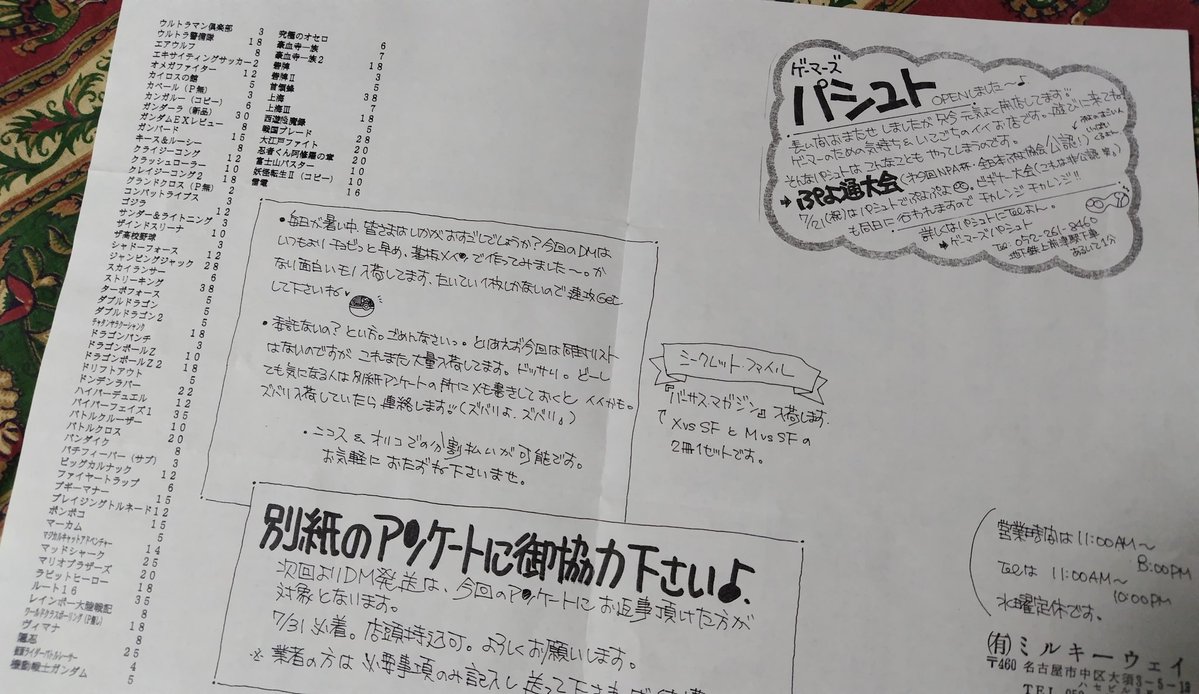 ウルトラマン倶楽部 3
ウルトラ警備隊 18
エアウルフ 8
エキサイティングサッカー 2
オメガファイター 12
カイロスの館 5
カベール（P無） 3
カンガルー（コピー） 6
ガンダーラ（新品） 30
ガンダムEXレビュー 8
ガンバード 15
キース＆ルーシー 8
クライジーコング 12
クラッシュローラー 10
クレイジーコング2 12
グランドクロス（P無） 18
コンバットライブス 3
ゴジラ 12
サンダー＆ライトニング 3
ザインドスリーナ 10
ザ高校野球 3
シャドーフォース 12
ジャンピングジャック 28
スカイランサー 6
ストリーキング 38
ターボフォース 5
ダブルドラゴン 5
ダブルドラゴン2
チャタンヤラクーシャンク 18
ドラゴンパンチ 3
ドラゴンボールZ 10
ドラゴンボールZ2 18
ドリフトアウト 5
ドンデンラバー 22
ハイパーデュエル 12
バイパーフェイズ1 35
バトルクルーザー 10
バトルクロス 20
バンダイク 8
パチフィーバー（サブ） 3
ビッグカルナック 12
ファイヤートラップ 6
ブギーマナー 15
ブレイジングトルネード 12
ポンポコ 15
マーカム 5
マジカルキャットアドベンチャー 14
マッドシャーク 25
マリオブラザーズ 20
ラビットヒーロー 18
ルート16 35
レインボー大盤戦記
ワールドクラスボーリング（P無し） 18
ヴィマナ 8
隠忍 25
仮面ライダーバトルレーサー 4
機動戦士ガンダム 5
究極のオセロ 6
豪血寺一族 7
豪血寺一族2 18
3
5
首領蜂 38
上海 7
上海Ⅲ 18
西遊降魔録 5
戦国ブレード 28
大江戸ファイト 20
忍者くん阿修羅の章 20
富士山バスター 10
妖怪転生Ⅱ（コピー） 10
雷電 16
ゲーマーズ
パシュト OPENしましたー♪
長い間おまたせしましたが 7/9 元気よく開店してます!! 遊びに来てね
ゲーマーのための気持ち＆いごこちのイイお店です。
そんなパシュトはこんなこともやってしまうのです。
→ぷよ通大会（第9回NPA杯・全日本ぷよ協会公認！）
7/21（祝）はパシュトでぷよぷよ ビギナー大会（これは非公認 笑。）
も同日に行われますので チャレンジ チャレンジ!!
詳しくはパシュトにTELよん。
→ゲーマーズパシュト
TEL 052-261-8460
地下鉄上前津駅下車
あるいて1分
・毎日が暑い中、皆さまはいかがおすごしでしょうか？今回のDMは
いつもよりチョビっと早め、基板メインで作ってみました～。か
ない面白いモノ入荷してます、たいてい1枚しかないので速攻Getし
して下さいね
・委託ないの？という方。ごめんなさいっ。とはゆえお今回は同封リスト
はないのですが、これまた大量入荷してます。ドッサリ。どーし
ても気になる人は別紙アンケートの所にメモ書きしておくとイイかも。
ズバリ入荷していたら連絡します!!（ズバリよ、ズバリ。）
・ニコス＆オリコでの分割払いが可能です。
お気軽におたずね下さいませ。
シークレット・ファイル
『バーサスマガジン』入荷します。
XvsSFとMvsSFの
2冊1セットです。
別紙のアンケートに御協力下さい♪.
次回よりDM発送は、今回のアンケートにお返事頂けた方が
対象となります。
7/31必着。店頭持込可。よろしくお願いします。
※業者の方は必要事項のみ記入し送って下さればOK
営業時間は11:00AM～
8:00PM
TELは 11:00AM～
10:00PM
水曜定休です。
(有)ミルキーウェイ
〒460 名古屋市中区大須3-5-13